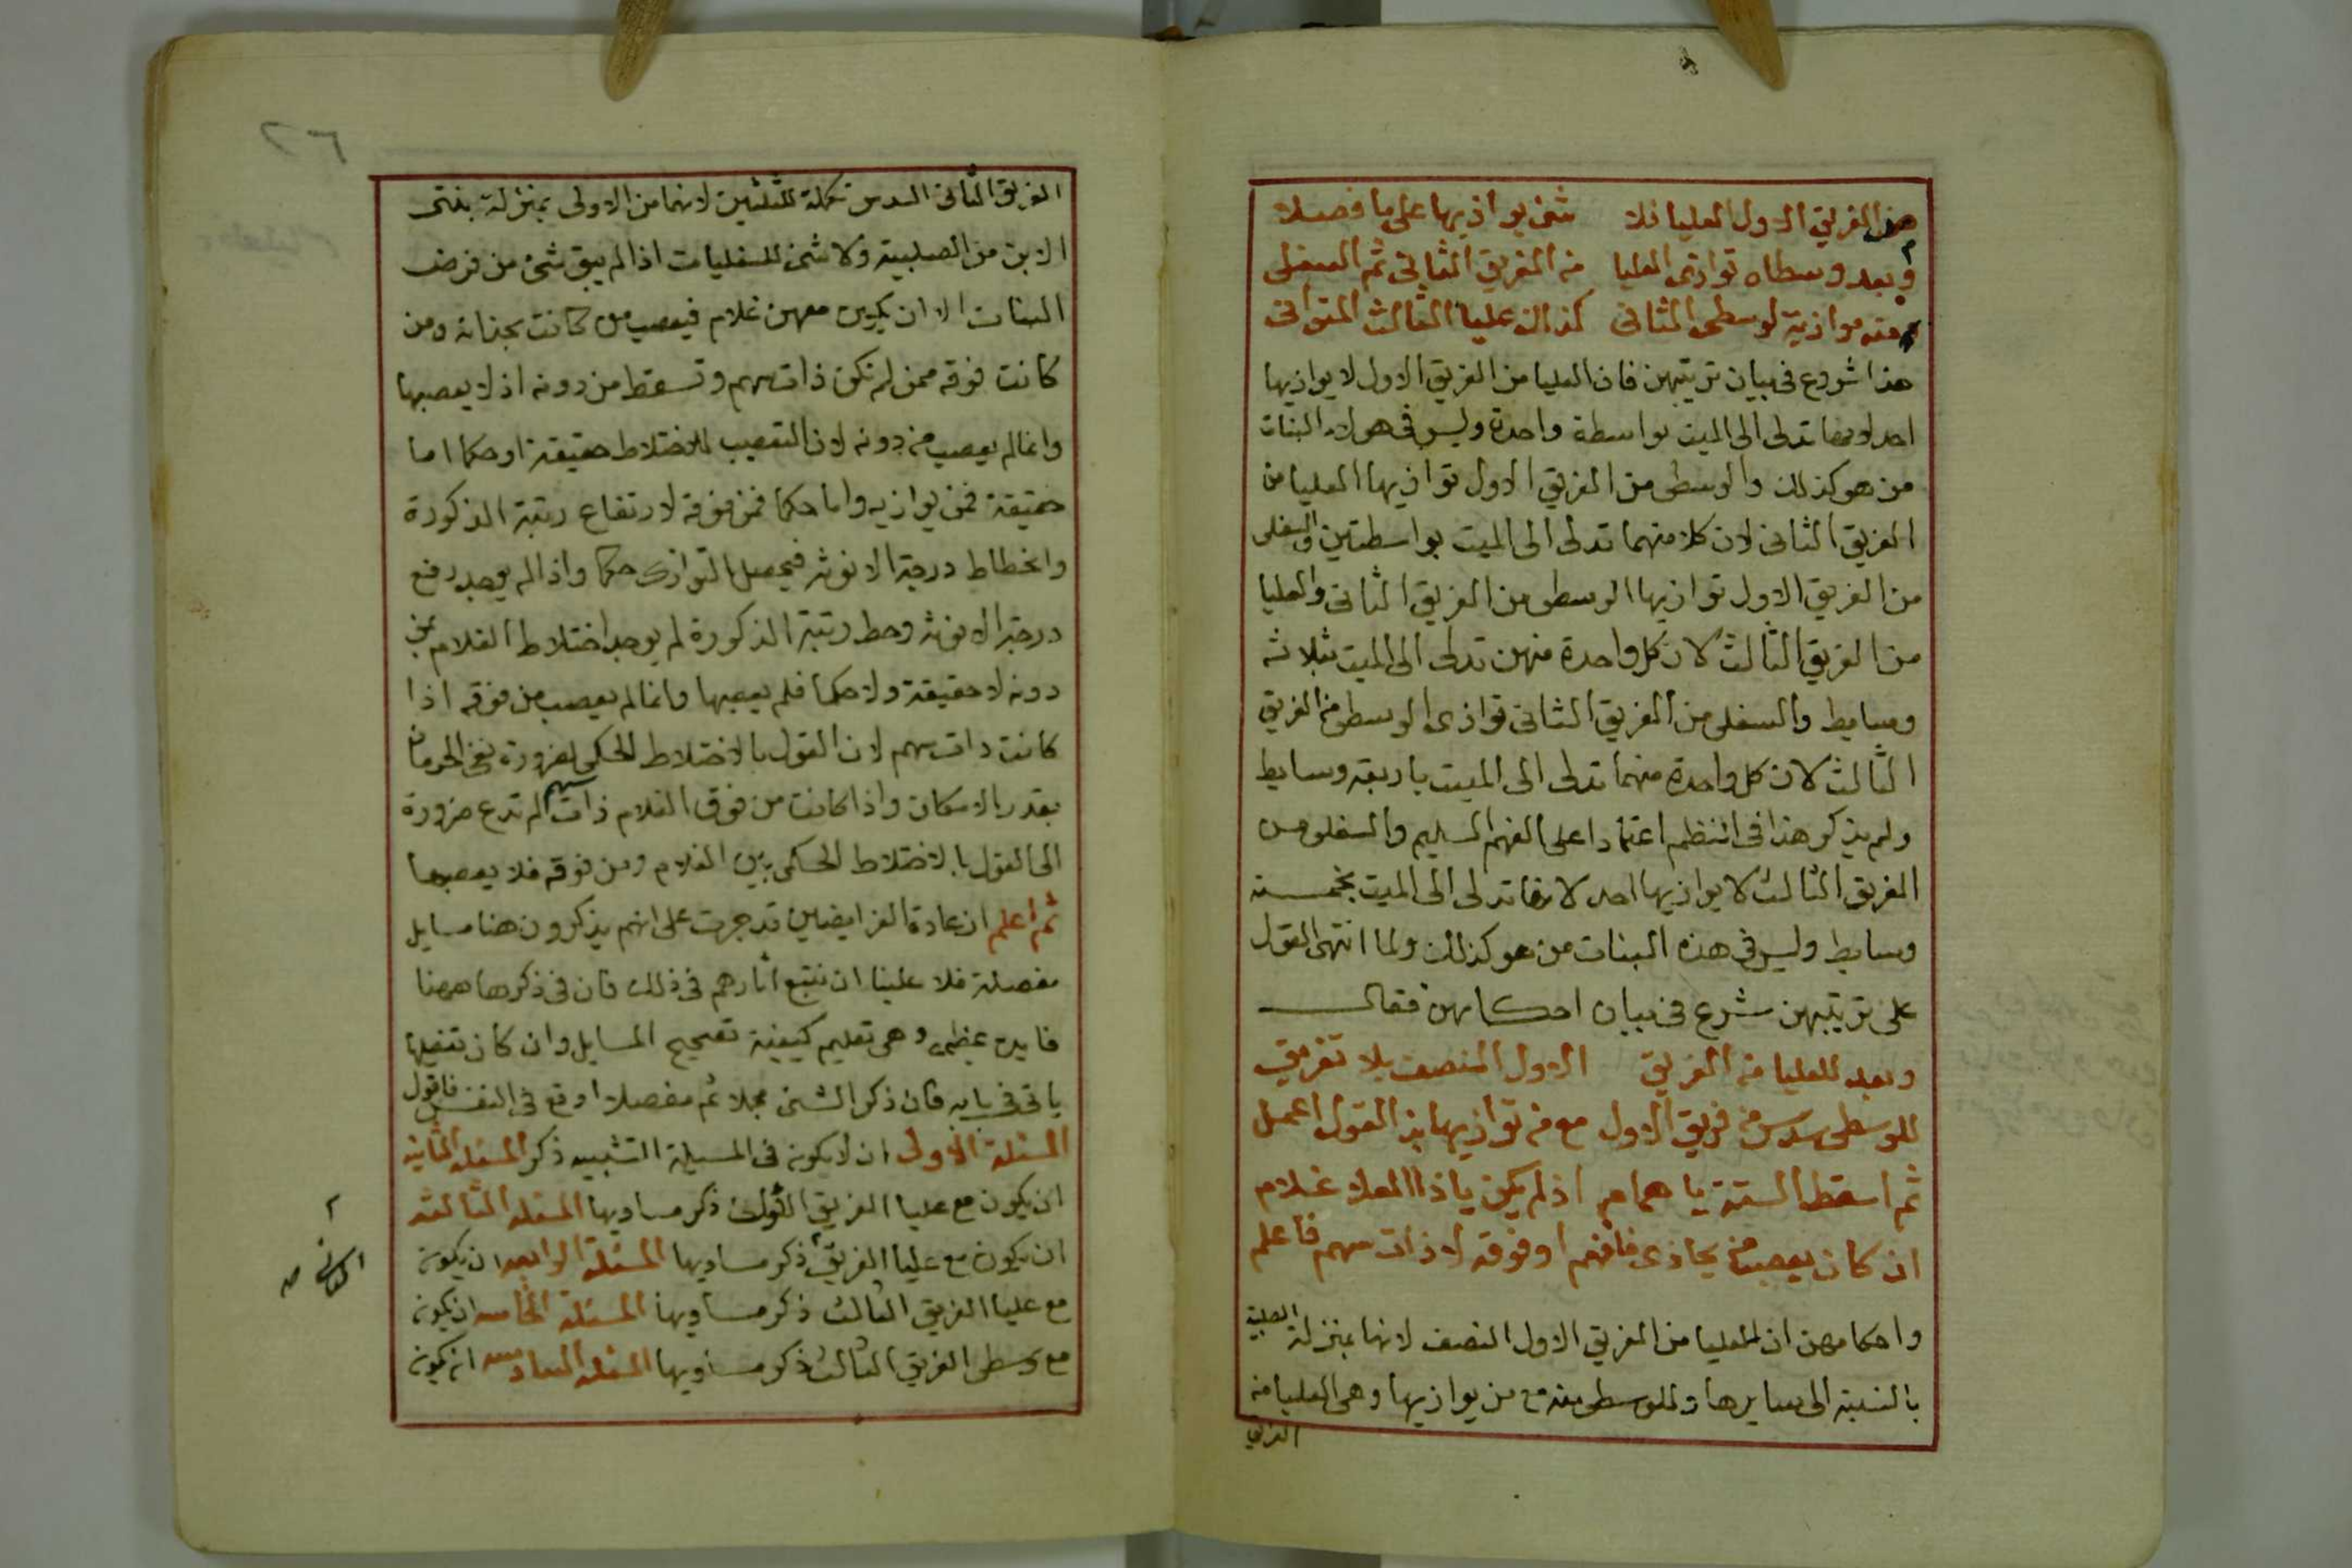 من الفريق الاول العليا فلا شئ يوازيها على ما فصلا
وبعد وسطاه توازى العليا من الفريق الثانى ثم السفلى
منه موازية لوسطى الثانى كذاك عليا الثالث المتوانى
هذا شروع فى بيان ترتيبهن فان العليا من الفريق الاول لا يوازيها
احد لانها تدلى الى الميت بواسطة واحدة وليس فى هولاء البنات
من هو كذلك والوسطى من الفريق الاول توازيها العليا من
الفريق الثانى لان كلا منهما تدلى الى الميت بواسطتين والسفلى
من الفريق الاول توازيها الوسطى من الفريق الثانى والعليا
من الفريق الثالث لان كل واحدة منهن تدلى الى الميت بثلاثة
وسايط والسفلى من الفريق الثانى توازى الوسطى من الفريق
الثالث لان كل واحدة منهما تدلى الى الميت باربعة وسايط
ولم يذكر هذا فى النظم اعتمادا على الفهم السليم والسفلى من
الفريق الثالث لا يوازيها احد لانها تدلى الى الميت بخمسة
وسايط وليس فى هذه البنات من هو كذلك ولما انتهى القول
على ترتيبهن شرع فى بيان احكامهن فقال
وبعد للعليا من الفريق الاول النصف بلا تفريق
للوسطى سدس من فريق الاول مع من توازيها بذ القول اعمل
ثم اسقط الستة يا همام اذ لم يكن يا ذا العلا غلام
ان كان يعصب من يحاذى فافهم او فوقه لا ذات سهم فاعلم
واحكامهن ان للعليا من الفريق الاول النصف لانها بمنزلة الصلبية
بالنسبة الى سايرها وللوسطى منه مع من يوازيها وهى العليا من
الفريق
٢٦
الفريق الثانى السدس تكملة للثلثين لانهما من الاولى بمنزلة بنتى
الابن من الصلبية ولا شئ للسفليات اذ لم يبق شئ من فرض
البنات الا ان يكون معهن غلام فيعصب من كانت بحذائه ومن
كانت فوقه ممن لم تكن ذات سهم وتسقط من دونه اذ لا يعصبها
وانما لم يعصب من دونه لان التعصيب للاختلاط حقيقة او حكما اما
حقيقة فمن يوازيه واما حكما فمن فوقه لارتفاع رتبة الذكورة
وانحطاط درجة الانوثة فيحصل التوازى حكما واذا لم يوجد رفع
درجة الانوثة وحط رتبة الذكورة لم يوجد اختلاط الغلام بمن
دونه لا حقيقة ولا حكما فلم يعصبها وانما لم يعصب من فوقه اذا
كانت ذات سهم لان القول بالاختلاط الحكمى لضرورة نفى الحرمان
بقدر الامكان واذا كانت من فوق الغلام ذات سهم لم تدع ضرورة
الى القول بالاختلاط الحكمى بين الغلام ومن فوقه فلا يعصبها
ثم اعلم ان عادة الفرايضيين قد جرت على انهم يذكرون هنا مسايل
مفصلة فلا علينا ان نتبع اثارهم فى ذلك فان فى ذكرها ههنا
فايدة عظمى وهى تعليم كيفية تصحيح المسايل وان كان تفصيلها
ياتى فى بابه فان ذكر الشئ مجملا ثم مفصلا اوقع فى النفس فاقول
المسئلة الاولى ان لا يكون فى المسيلة التشبيب ذكر المسئلة الثانية
ان يكون مع عليا الفريق الاول ذكر مساويها المسئلة الثالثة
ان يكون مع عليا الفريق ذكر مساويها المسئلة الرابعة ان يكون
الثانى صح
مع عليا الفريق الثالث ذكر مساويها المسئلة الخامسة ان يكون
مع وسطى الفريق الثالث ذكر مساويها المسئلة السادسة ان يكون